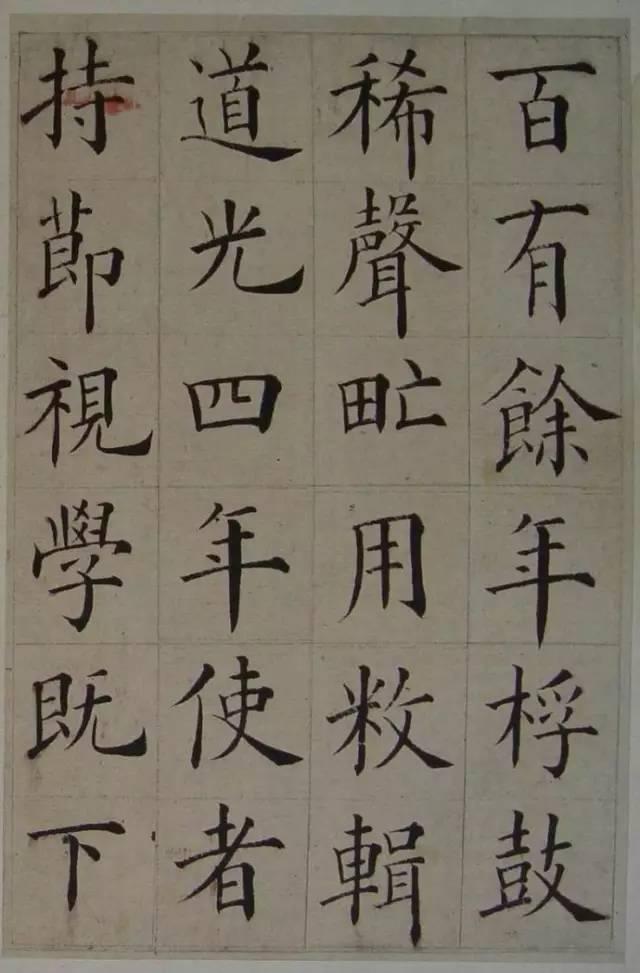 百有餘年桴鼓
稀聲甿用敉輯
道光四年使者
持節視學既下